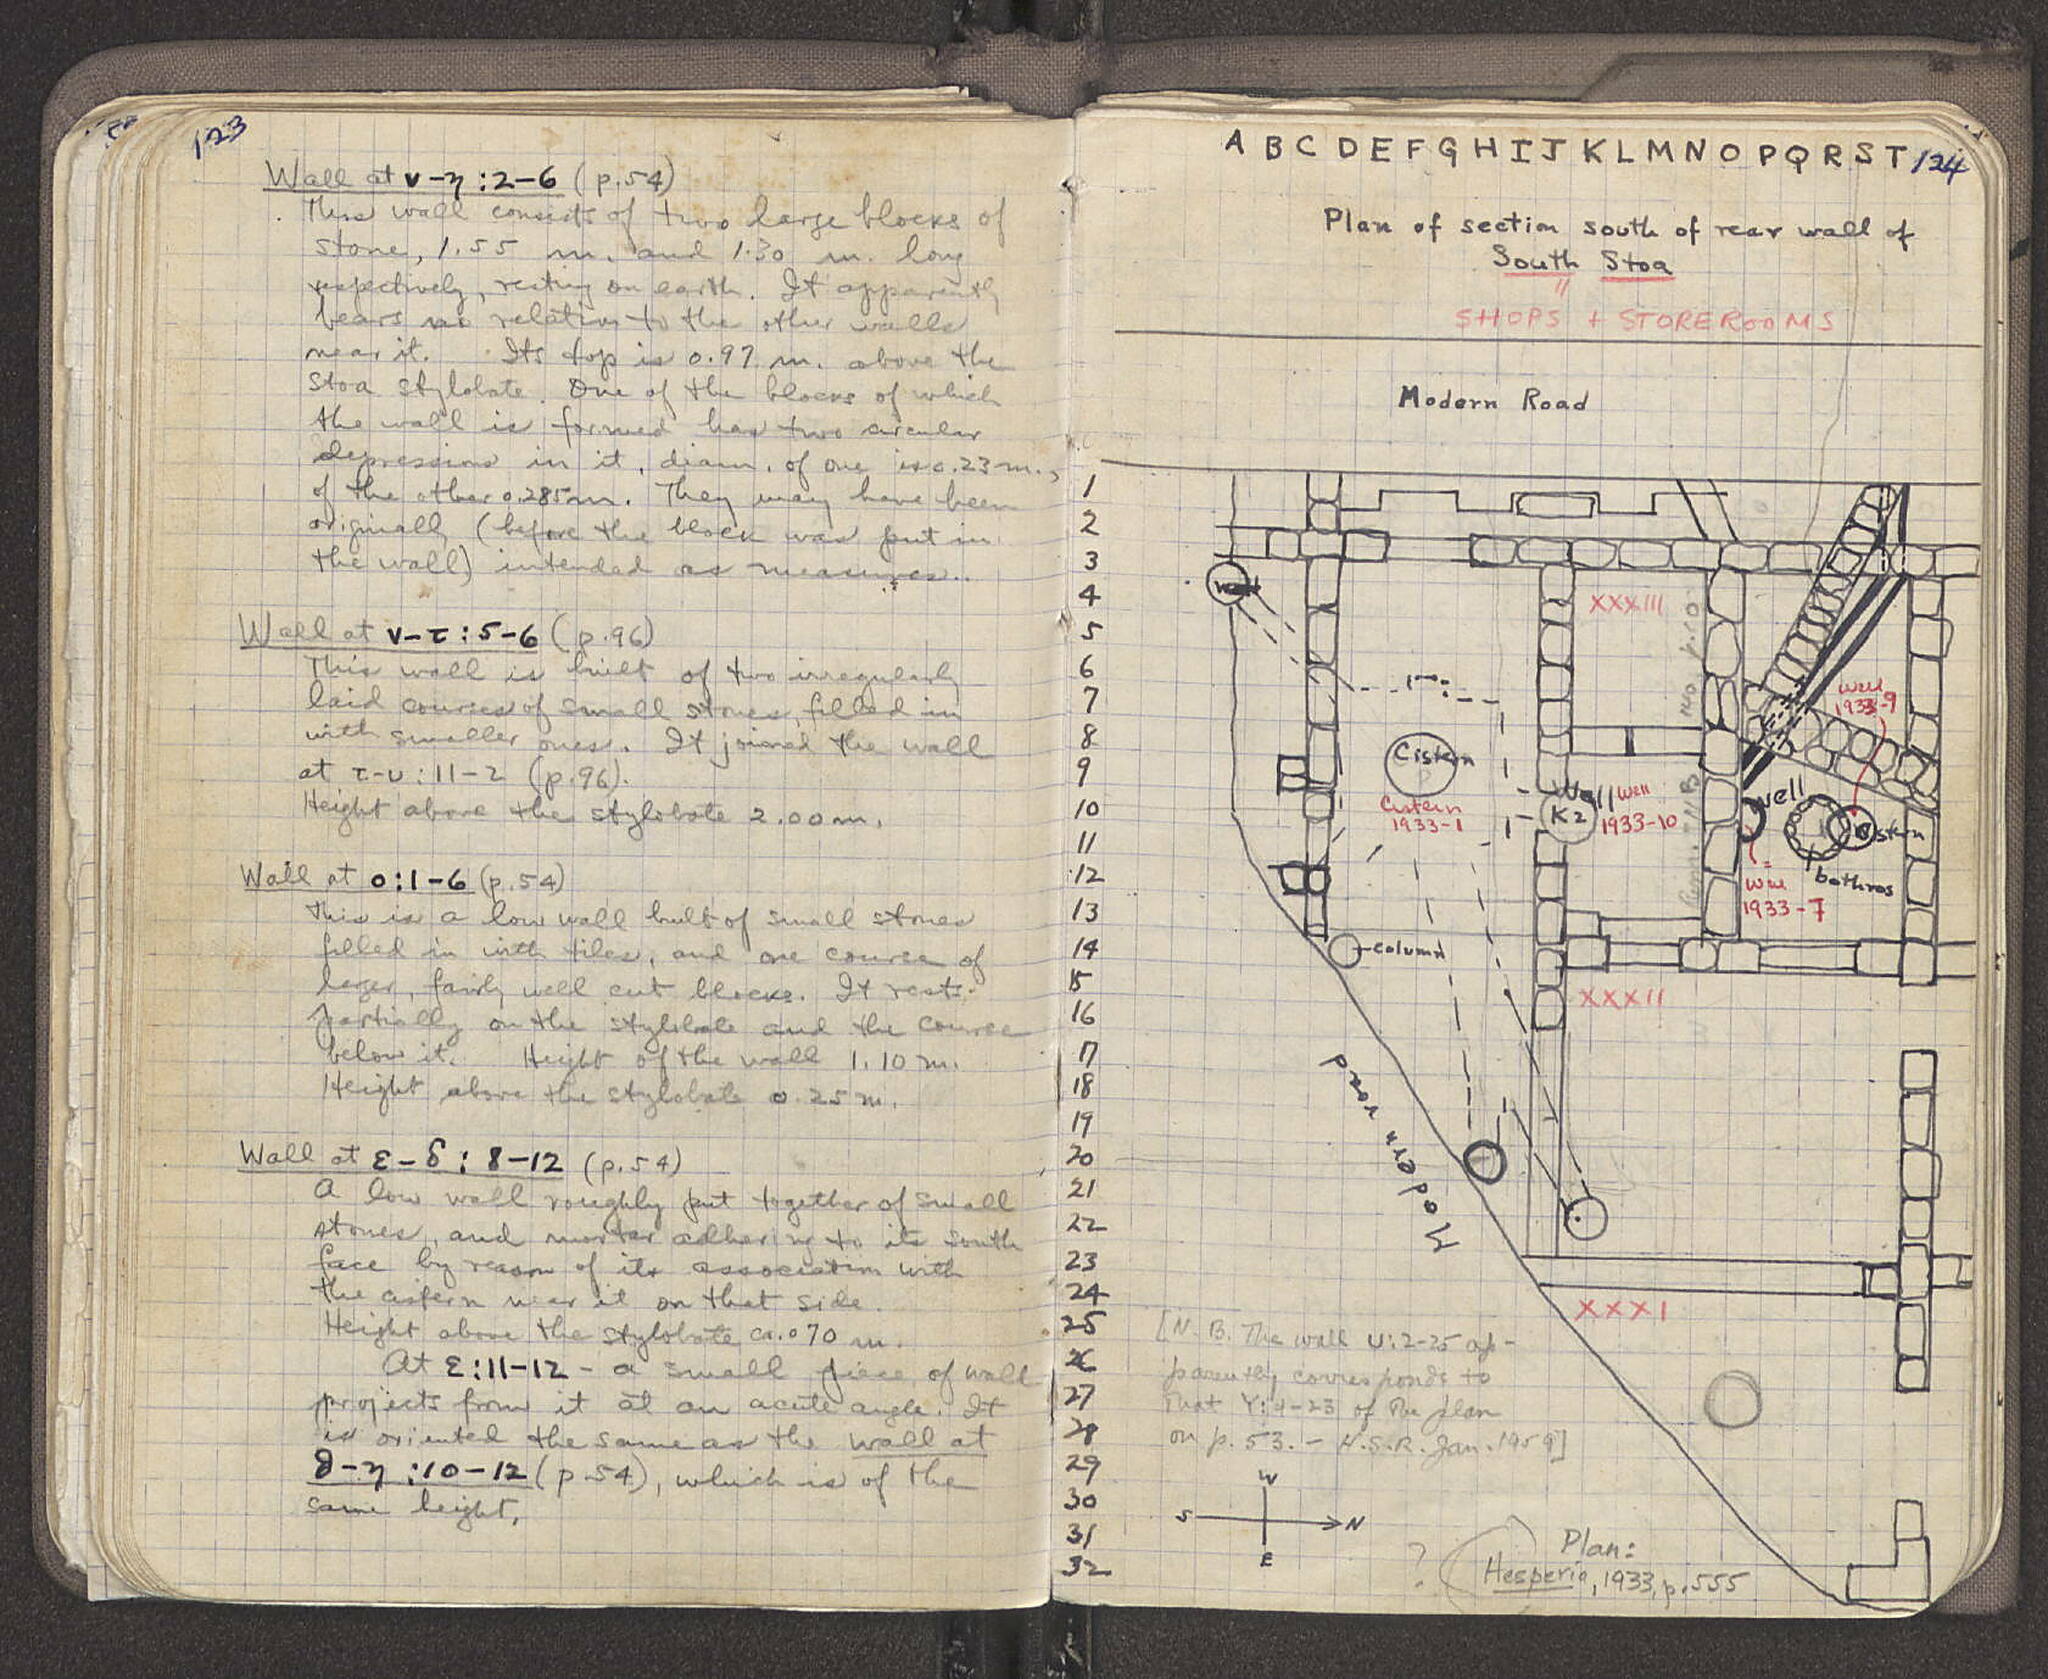 123
Wall at ν–η : 2–6 (p. 54)
This wall consists of two large blocks of
stone, 1.55 m. and 1.30 m. long
respectively, resting on earth. It apparently
bears no relation to the other walls
near it. Its top is 0.97 m. above the
Stoa stylobate. One of the blocks of which
the wall is formed has two circular
depressions in it, diam. of one is 0.23 m.,
of the other 0.285 m. They may have been
originally (before the block was put in
the wall) intended as measures.
Wall at ν–τ : 5–6 (p. 96)
This wall is built of two irregularly
laid courses of small stones, filled in
with smaller ones. It joined the wall
at τ–υ : 11–2 (p. 96).
Height above the stylobate 2.00 m.
Wall at ο : 1–6 (p. 54)
This is a low wall built of small stones
filled in with tiles, and one course of
larger, fairly well cut blocks. It rests
partially on the stylobate and the course
below it. Height of the wall 1.10 m.
Height above the stylobate 0.25 m.
Wall at ε–δ : 8–12 (p. 54)
A low wall roughly put together of small
stones, and mortar adhering to its south
face by reason of its association with
the cistern near it on that side.
Height above the stylobate ca. 070 m.
At ε : 11–12 – a small piece of wall
projects from it at an acute angle. It
is oriented the same as the wall at
–η : 10–12 (p. 54), which is of the
same height.
A B C D E F G H I J K L M N O P Q R S T 124
Plan of section south of rear wall of
South Stoa
"
SHOPS + STOREROOMS
Modern Road
1
2
3
4
5
6
7
8
9
10
11
12
13
14
15
16
17
18
19
20
21
22
23
24
25
26
27
28
29
30
31
32
well
XXXIII
well
1933-9
Cistern
Cistern
1933-1
Well
K2
well
1933-10
well
Cistern
bothros
=
well
1933-7
column
XXXII
Modern road
XXXI
[N.B. The wall U:2-25 ap-
parently corresponds to
that Y:4-23 of the plan
on p. 53. – H.S.R. Jan. 1959]
W
S N
E
? Plan:
Hesperia, 1933, p. 555